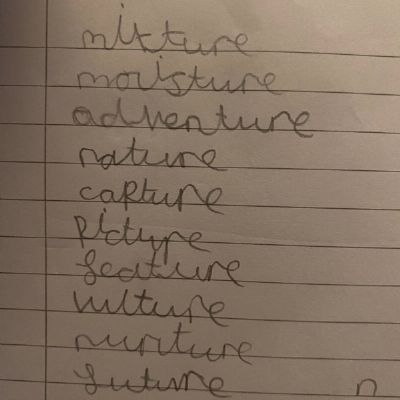 mixture
moisture
adventure
nature
capture
picture
feature
vulture
nurture
future
n